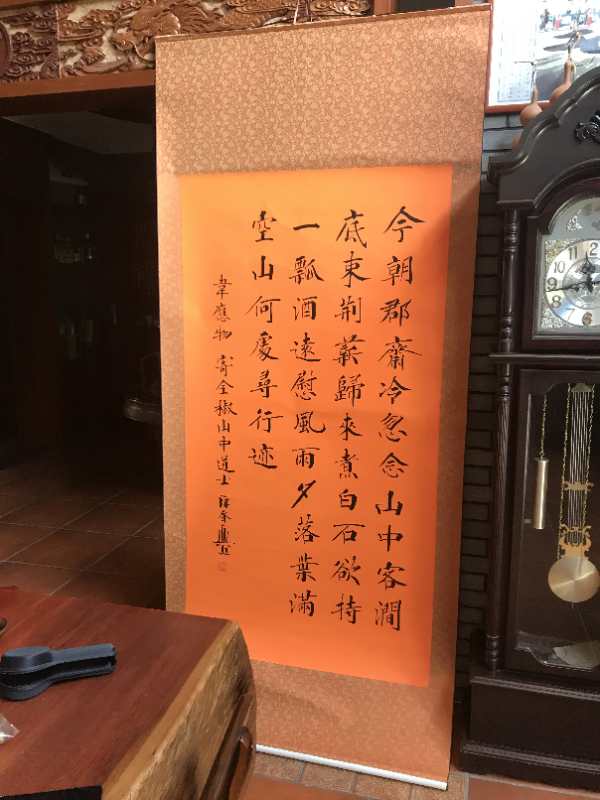 今朝郡齋冷忽念山中客澗
底束荊薪歸來煮白石欲持
一瓢酒遠慰風雨夕落葉滿
空山何處尋行迹
韋應物 寄全椒山中道士